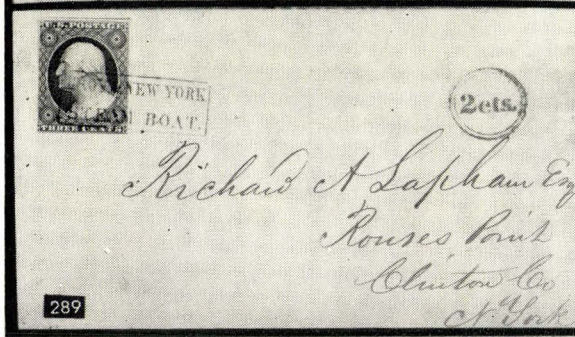 U.S. POSTAGE
THREE CENTS
NEW YORK
STEAM BOAT.
2cts.
Richard A Lapham Esq
Rouses Point
Clinton Co
N. York
289